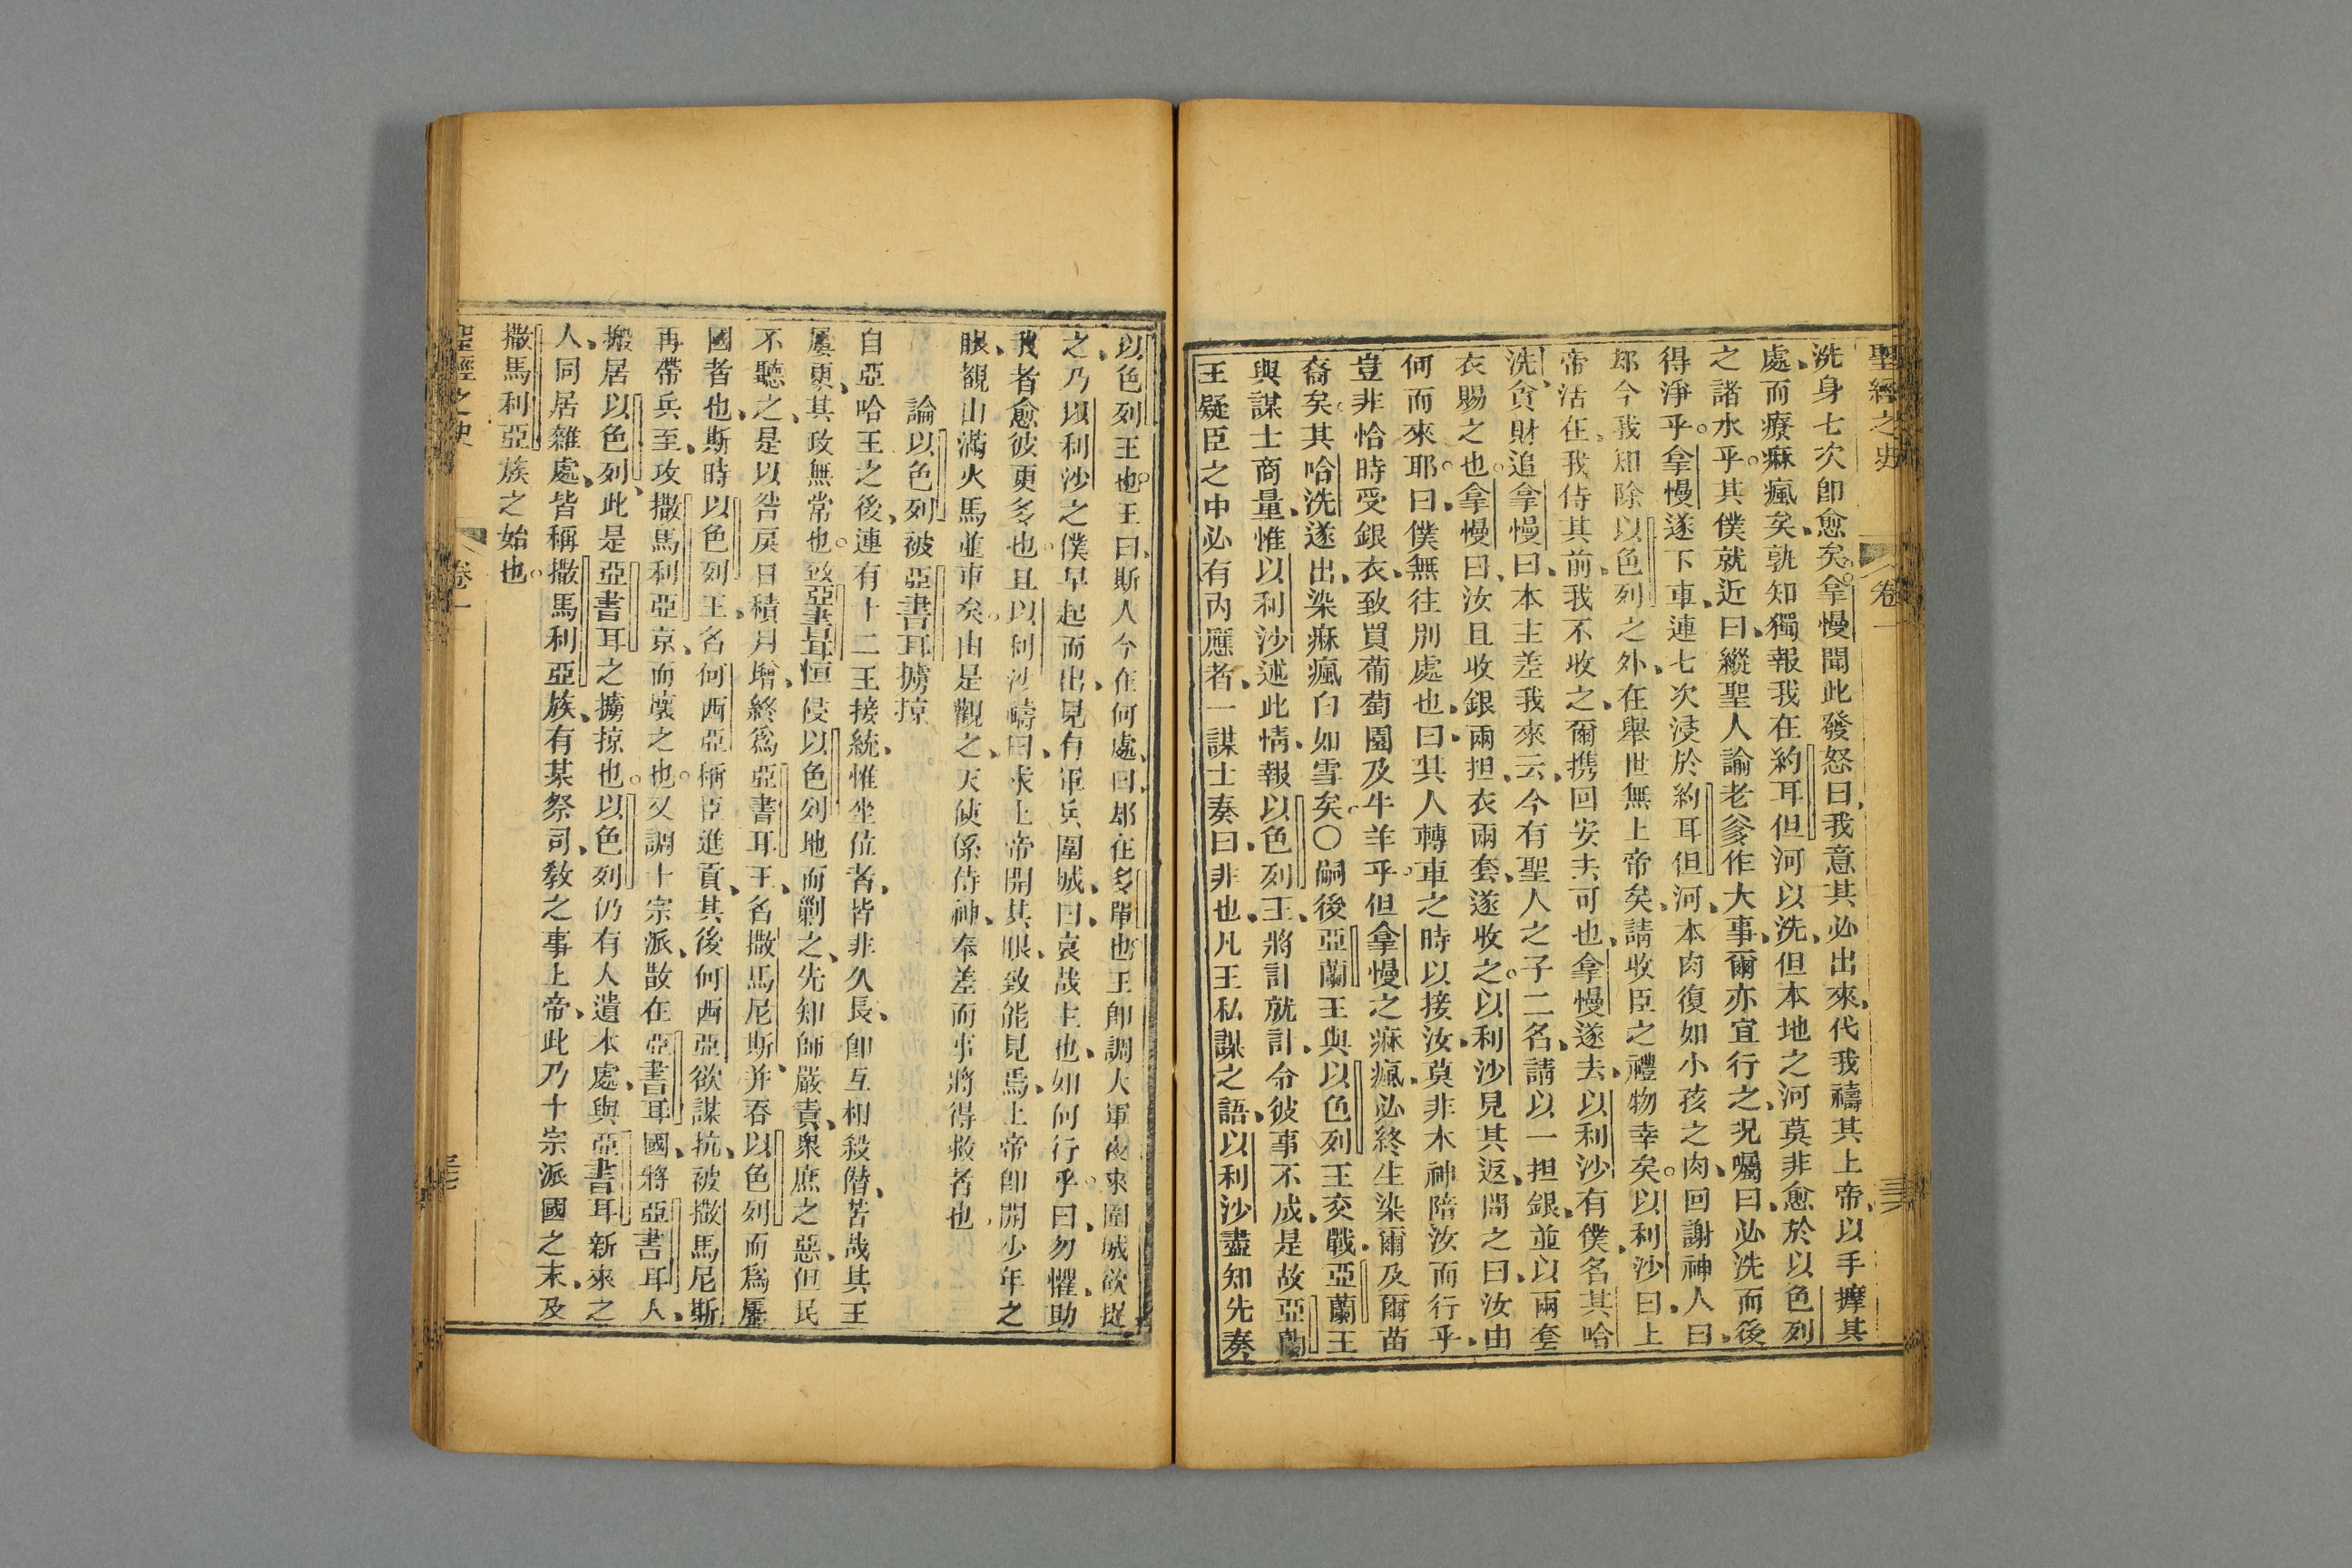 聖經之史 卷一
洗身七次卽愈矣。拿慢聞此發怒曰、我意其必出來、代我禱其上帝、以手摩其
處、而療痳瘋矣、孰知獨報我在約耳但河以洗、但本地之河莫非愈於以色列
之諸水乎。其僕就近曰、縱聖人諭老爹作大事、爾亦宜行之、况囑曰、必洗而後
得淨乎。拿慢遂下車、連七次浸於約耳但河、本肉復如小孩之肉、回謝神人曰、
郍今我知除以色列之外、在舉世無上帝矣、請收臣之禮物幸矣。以利沙曰、上
帝活在、我侍其前、我不收之、爾携回安去可也、拿慢遂去、以利沙有僕、名其哈
洗、貪財追拿慢曰、本主差我來云、今有聖人之子二名、請以一担銀、並以兩套
衣賜之也。拿慢曰、汝且收銀兩担、衣兩套、遂收之。以利沙見其返、問之曰、汝由
何而來耶。曰、僕無往別處也、曰、其人轉車之時以接汝、莫非本神陪汝而行乎、
豈非恰時受銀衣、致買葡萄園及牛羊乎。但拿慢之痳瘋、必終生染爾及爾苗
裔矣。其哈洗遂出、染痳瘋白如雪矣。〇嗣後亞蘭王與以色列王交戰、亞蘭王
與謀士商量、惟以利沙述此情、報以色列王、將計就計、令彼事不成、是故亞蘭
王疑臣之中必有內應者、一謀士奏曰、非也、凡王私謀之語、以利沙盡知先奏
以色列王也。王曰、斯人今在何處、曰、郍在多單也、王卽調大軍夜來圍城欲捉
之、乃以利沙之僕早起而出、見有軍兵圍城、曰、哀哉主也、如何行乎。曰、勿懼、助
我者愈彼更多也。且以利沙禱曰、求上帝開其眼、致能見焉、上帝卽開少年之
眼、覩山滿火馬並車矣。由是觀之、天使係侍神、奉差而事將得救者也、
論以色列被亞書耳擄掠
自亞哈王之後、連有十二王接統、惟坐位者、皆非久長、卽互相殺僭、苦哉其王
屢更、其政無常也。致亞書耳恒侵以色列地而剿之、先知師嚴責、衆庶之惡、但民
不聽之、是以咎戾日積月增、終爲亞書耳王、名撒馬尼斯、并吞以色列而爲屬
國者也、斯時以色列王、名何西亞稱臣進貢、其後何西亞欲謀抗、被撒馬尼斯
再帶兵至、攻撒馬利亞京、而壞之也。又調十宗派、散在亞書耳國、將亞書耳人、
搬居以色列、此是亞書耳之擄掠也。以色列仍有人遺本處、與亞書耳新來之
人、同居雜處、皆稱撒馬利亞族、有某祭司、敎之事上帝、此乃十宗派國之末、及
撒馬利亞族之始也。
聖經之史 卷一